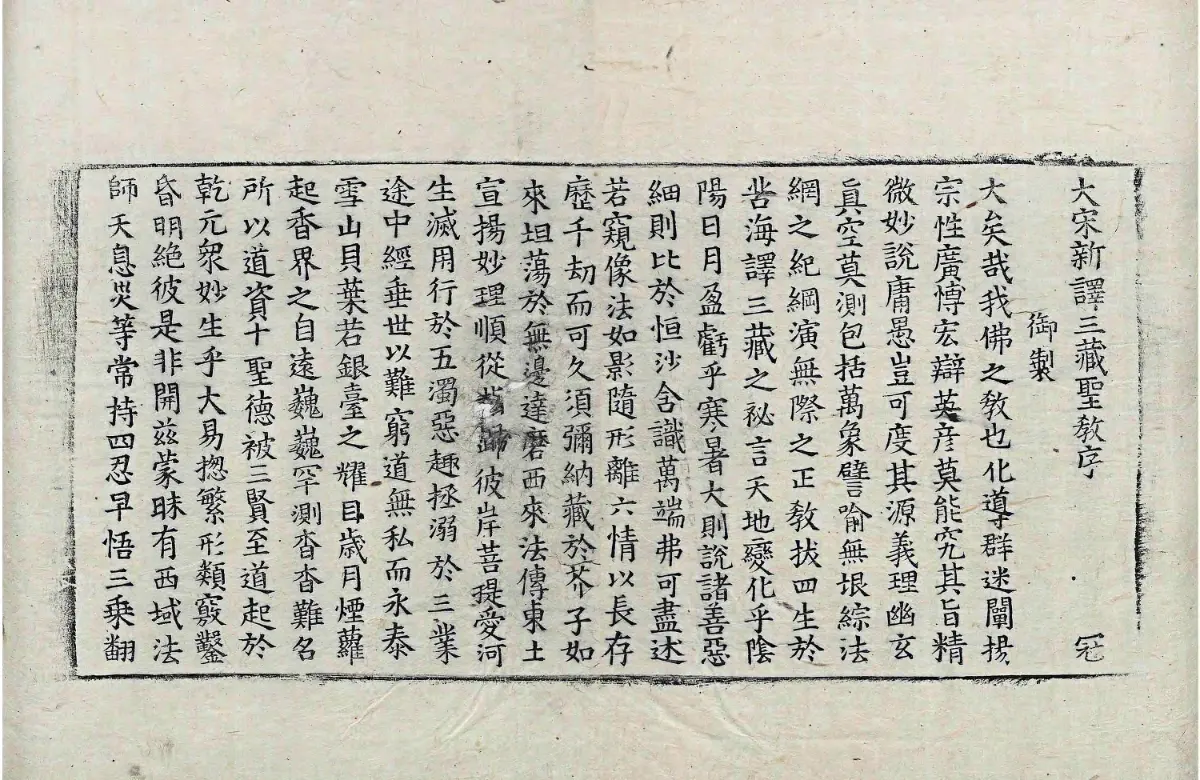 大宋新譯三藏聖教序　冠
御製
大矣哉我佛之教也化導群迷闡揚
宗性廣愽宏辯英彥莫能究其旨精
微妙說庸愚豈可度其源義理幽玄
真空莫測包括萬象譬喻無垠綜法
網之紀綱演無際之正教拔四生於
苦海譯三藏之祕言天地變化乎陰
陽日月盈虧乎寒暑大則說諸善惡
細則比於恒沙含識萬端弗可盡述
若窺像法如影隨形離六情以長存
歷千劫而可久須彌納藏於芥子如
來坦蕩於無邊達磨西來法傳東土
宣揚妙理順從歸彼岸菩提愛河
生滅用行於五濁惡趣拯溺於三業
途中經垂世以難窮道無私而永泰
雪山貝葉若銀臺之耀目歲月煙蘿
起香界之自遠巍巍罕測杳杳難名
所以道資十聖德被三賢至道起於
乾元衆妙生乎大易揔繁形類竅鑿
昏明絕彼是非開兹蒙昧有西域法
師天息災等常持四忍早悟三乘翻